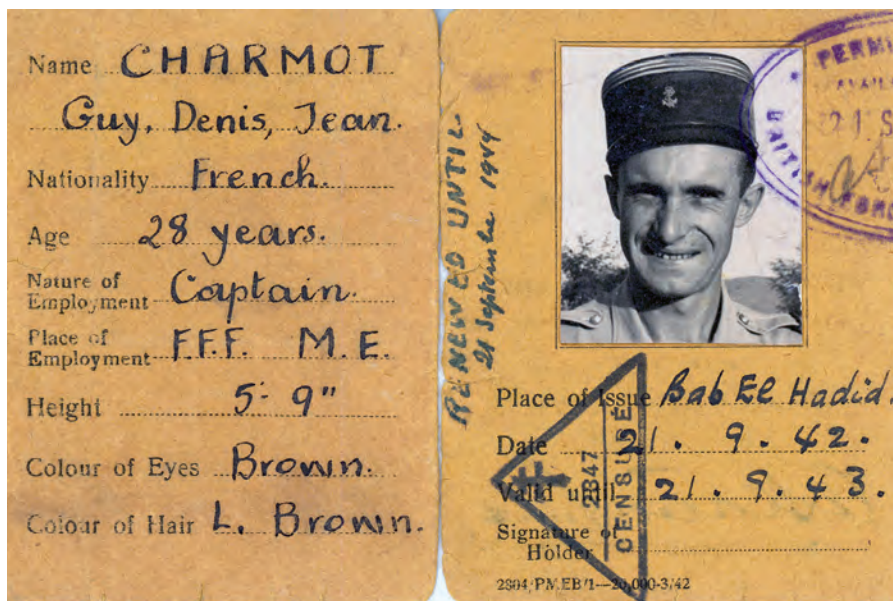 Name CHARMOT
Guy, Denis, Jean.
Nationality French.
Age 28 years.
Nature of
Employment Captain.
Place of
Employment F.F.F. M.E.
Height 5' 9"
Colour of Eyes Brown.
Colour of Hair L. Brown.
RENEWED UNTIL
21 Septembre 1944
PERMI
AVAIL
21 S
BRITISH FOR
Place of Issue Bab El Hadid.
Date 21. 9. 42.
Valid until 21. 9. 43.
Signature of
Holder
2847
CENSURÉ
2804/PMEB/1—20,000-3/42